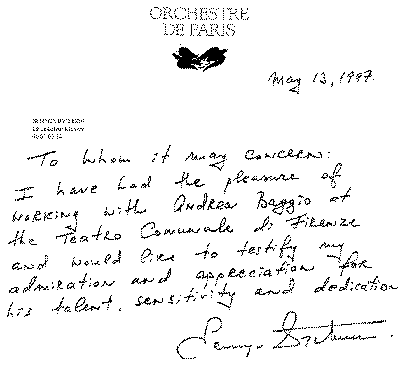 ORCHESTRE
DE PARIS
May 13, 1997.
To whom it may concern:
I have had the pleasure of
working with Andrea Baggio at
the Teatro Comunale di Firenze
and would like to testify my
admiration and appreciation for
his talent, sensitivity and dedication